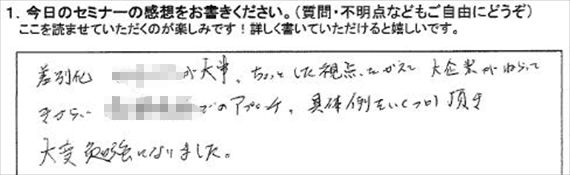 1. 今日のセミナーの感想をお書きください。(質問・不明点などもご自由にどうぞ)
ここを読ませていただくのが楽しみです！詳しく書いていただけると嬉しいです。
差別化 が大事、ちょっとした視点をかえて 大企業がねらって
でのアプローチ、具体例をいくつか頂き
大変勉強になりました。